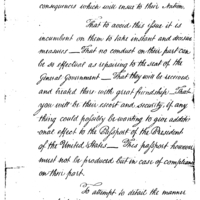 consequences which will ensue to their Nation.
That to avoid this Issue it is
incumbent on them to take instant and decisive
measures — That no conduct on their part can
be so effectual as repairing to the seat of the
General Government — That they will be received
and treated there with great friendship. That
you will be their escort and security, if any
thing could possibly be wanting to give additi-
onal effect to the Passport of the President
of the United States — This passport however
must not be produced but in case of compliance
on their part.
To attempt to detail the manner